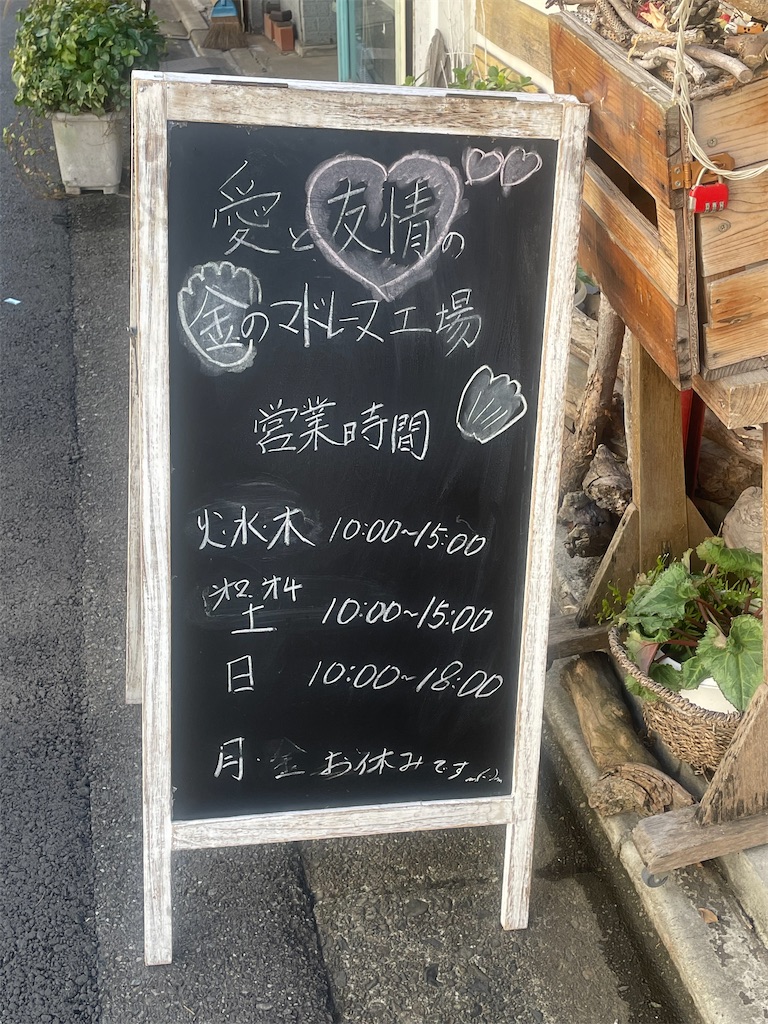 愛と友情の
金のマドレーヌ工場
営業時間
火・水・木 10:00~15:00
オ2.オ4
土 10:00~15:00
日 10:00~18:00
月・金 お休みです